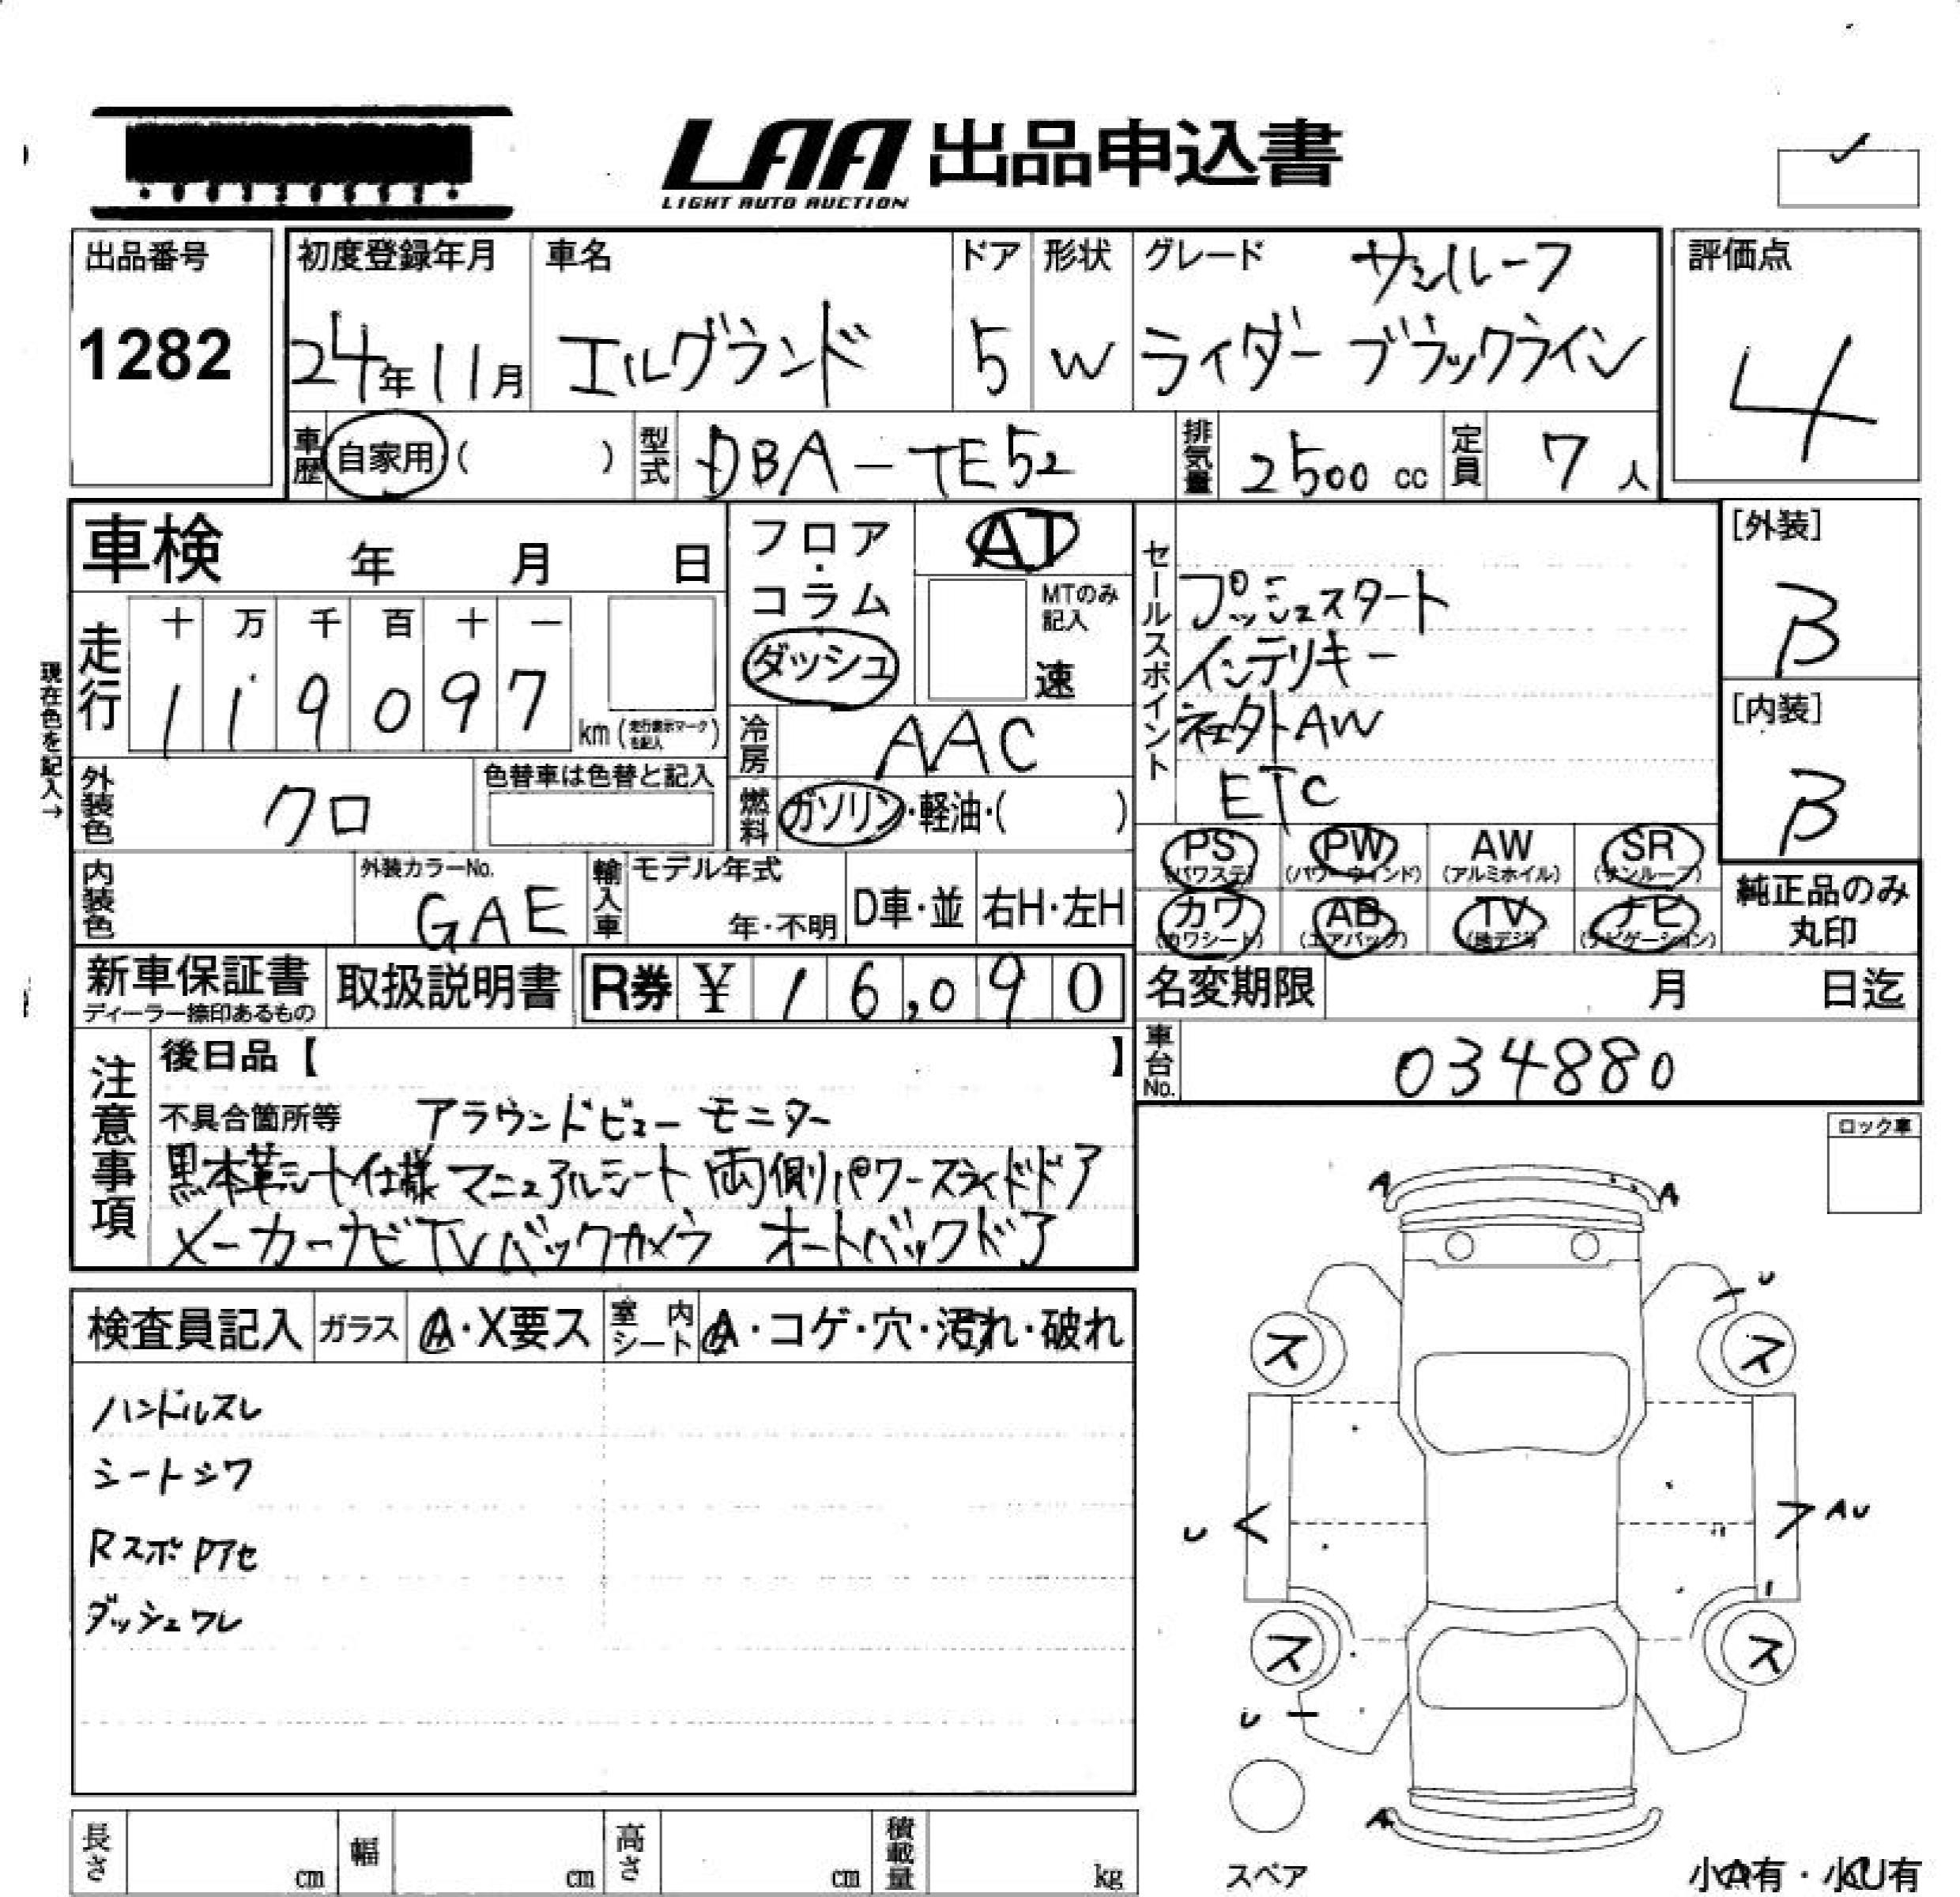 LAA 出品申込書
LIGHT AUTO AUCTION
出品番号
1282
初度登録年月
24年11月
車名
エルグランド
ドア
5
形状
W
グレード
サンルーフ
ライダー ブラックライン
評価点
4
車歴 自家用 ( )
型式 DBA-TE52
排気量 2500 cc
定員 7 人
車検 年 月 日
走行
十 万 千 百 十 一
1 1 9 0 9 7
km (走行表示マークを記入)
現在色を記入→
外装色 クロ
色替車は色替と記入
内装色
外装カラーNo.
GAE
輸入車
モデル年式
年・不明
D車・並
右H・左H
フロア・コラム
ダッシュ
AT
MTのみ記入
速
冷房 AAC
燃料 ガソリン・軽油・( )
セールスポイント
プッシュスタート
インテリキー
社外AW
ETC
[外装]
B
[内装]
B
PS (パワステ)
PW (パワーウインド)
AW (アルミホイル)
SR (サンルーフ)
カワ (カワシート)
AB (エアバック)
TV (地デジ)
ナビ (ナビゲーション)
純正品のみ丸印
新車保証書
ディーラー捺印あるもの
取扱説明書
R券 ¥ 16,090
名変期限 月 日迄
車台No. 034880
注意事項
後日品【 】
不具合箇所等 アラウンドビューモニター
黒本革シート仕様 マニュアルシート 両側パワースライドドア
メーカーナビTVバックカメラ オートバックドア
検査員記入
ガラス A・X要ス
室内シート A・コゲ・穴・汚れ・破れ
ハンドルスレ
シートシワ
Rスポ
ダッシュワレ
ロック車
A
A
U
ス
ス
U
AU
ス
ス
U
A
スペア
小A有・小U有
長さ cm
幅 cm
高さ cm
積載量 kg